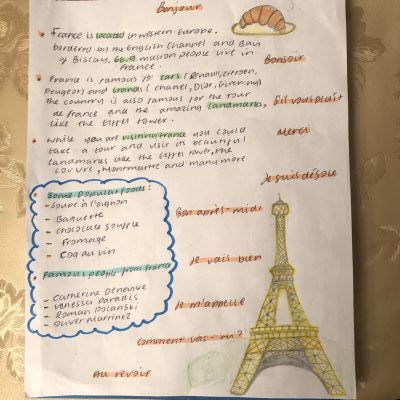 Bonjour
France is located in western Europe.
bordered by the English Channel and Bay
of Biscay, million people live in
France.
Bonsoir
France is famous for cars (Renault, citroen,
Peugeot) and brands (chanel, Dior, Givenchy)
the country is also famous for the tour
de france and the amazing landmarks,
like the Eiffel tower.
s'il vous plaît
Merci
while you are visiting france you could
take a tour and visit its beautiful
landmarks like the Eiffel tower, the
Louvre, Montmartre and many more
Je suis désolé
Some popular foods:
- Soupe à l'oignon
- Baguette
- chocolate souffle
- Fromage
- Coq au vin
Bon après-midi
Je vais bien
Famous people from france
- Catherine Deneuve
- Vanessa Paradis
- Roman Polanski
- Oliver Martinez
Je m'appelle
Comment vas-tu?
Au revoir